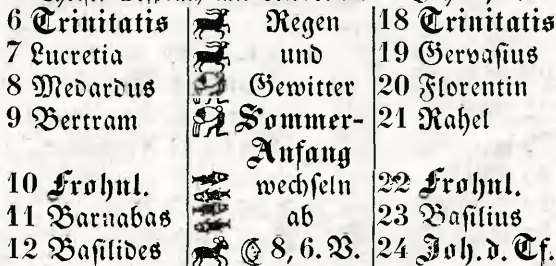 6 Trinitatis Regen 18 Trinitatis
7 Lucretia und 19 Gervasius
8 Medardus Gewitter 20 Florentin
9 Bertram Sommer- 21 Rahel
Anfang
10 Frohnl. wechseln 22 Frohnl.
11 Barnabas ab 23 Basilius
12 Basilides ☾ 8, 6. V. 24 Joh. d. Tf.